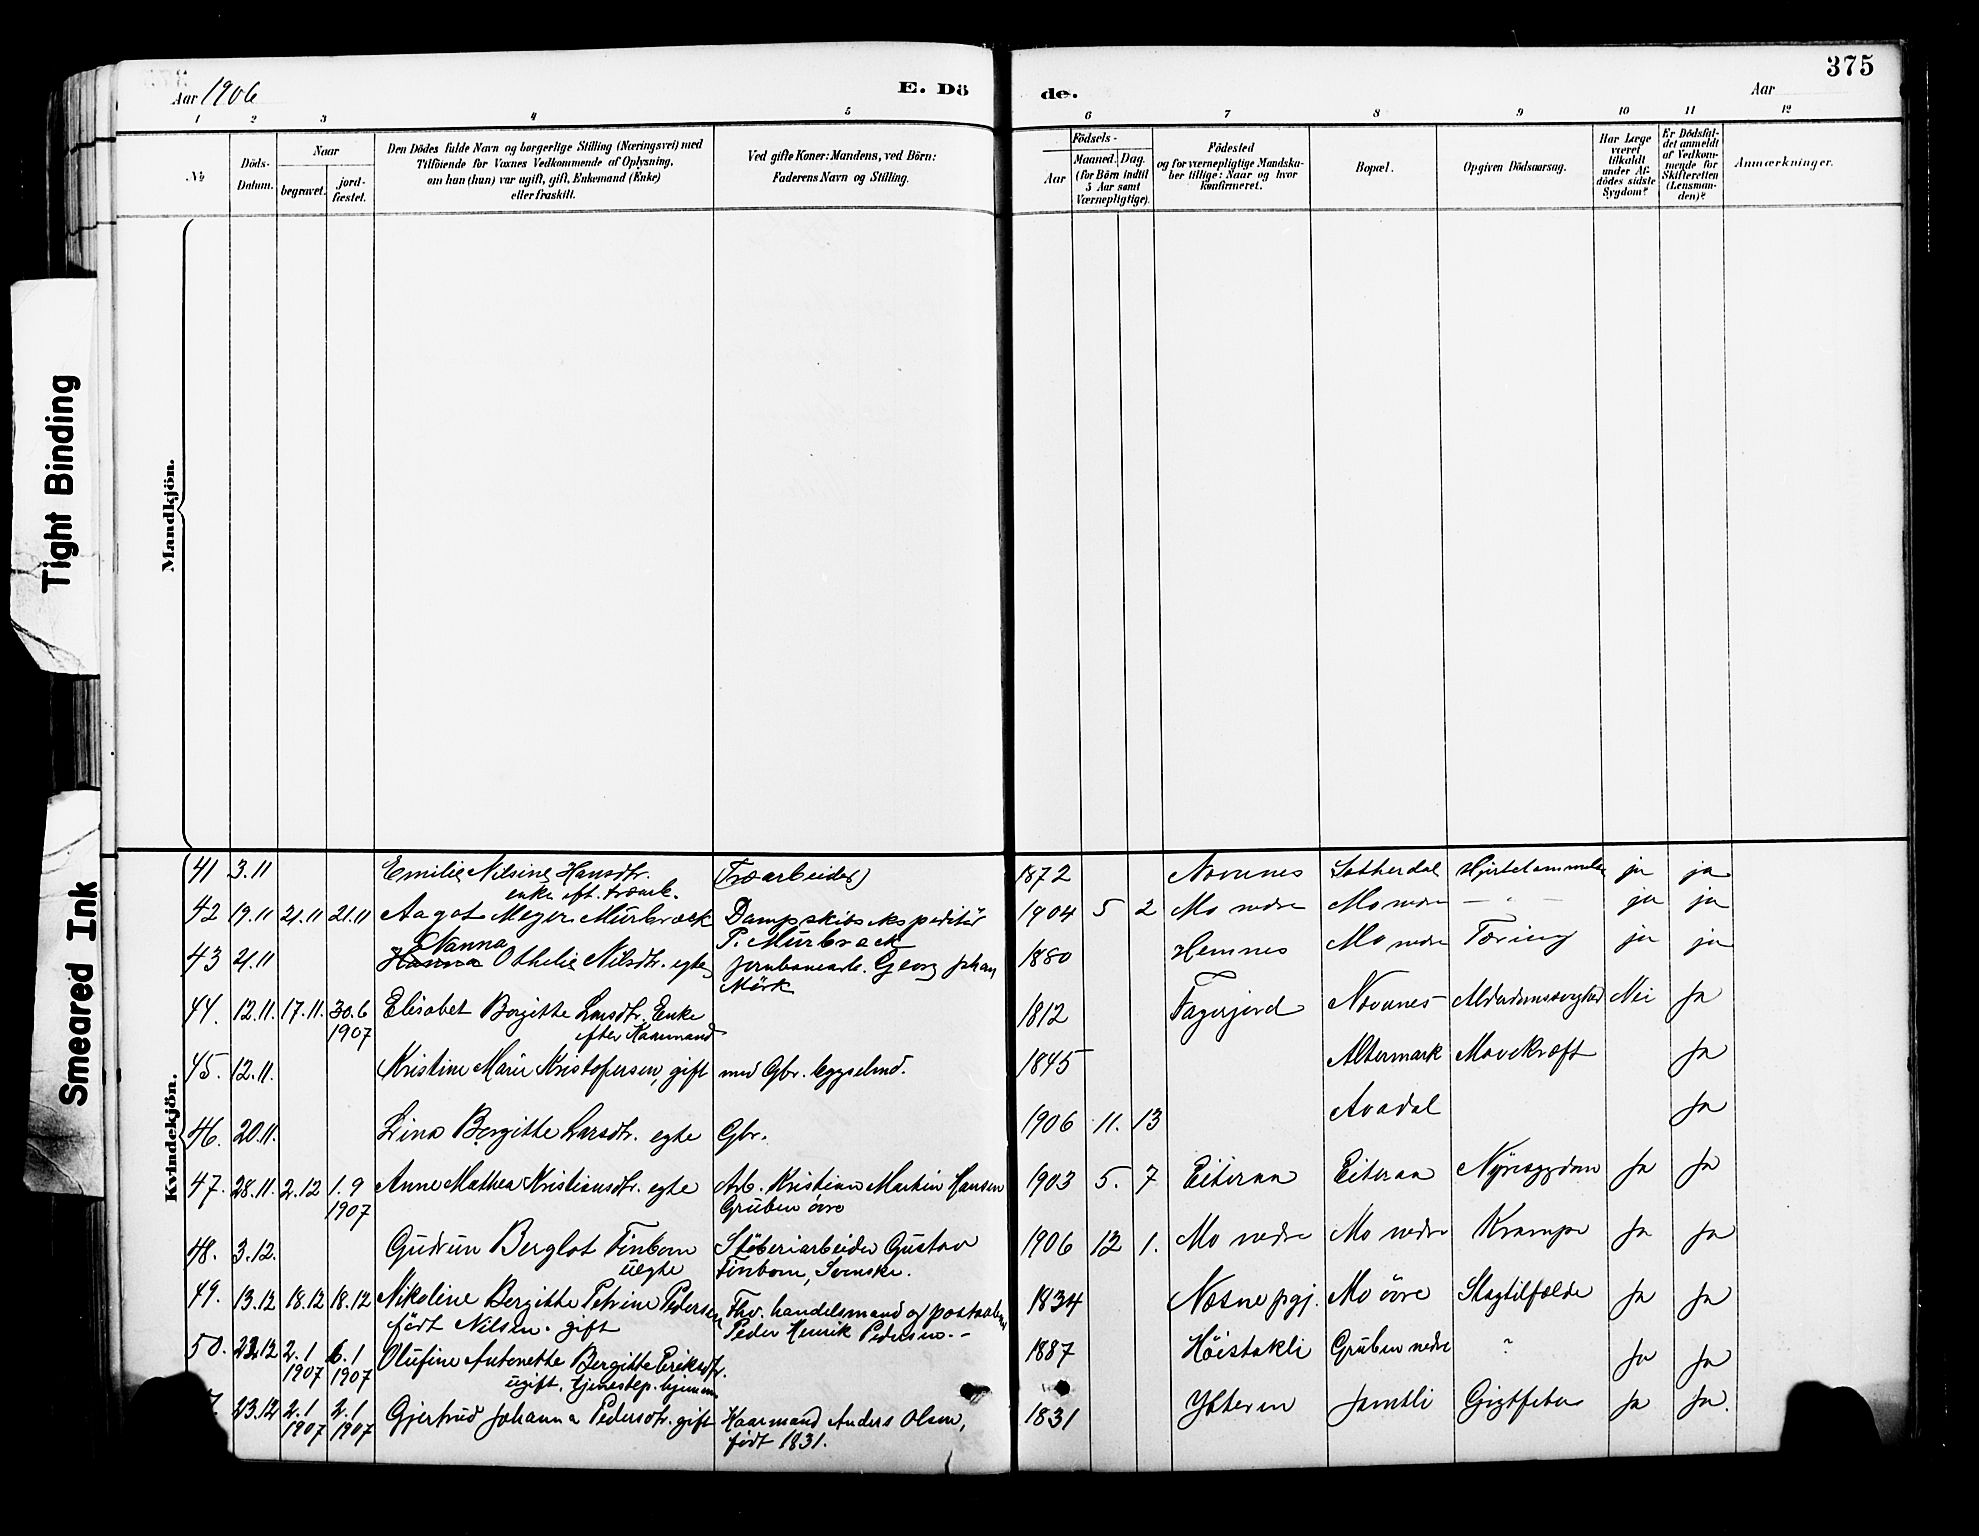 375
Aar 1906
E. Dö
de.
Aar
1 2 3 4 5 6 7 8 9 10 11 12
No
Döds-
Datum.
Naar
begravet.
jord-
fæstet.
Den Dödes fulde Navn og borgerlige Stilling (Næringsvei) med
Tilföiende for Voxnes Vedkommende af Oplysning,
om han (hun) var ugift, gift, Enkemand (Enke)
eller fraskilt.
Ved gifte Koner: Mandens, ved Börn:
Faderens Navn og Stilling.
Födsels-
Aar
Maaned. Dag.
(for Börn indtil
5 Aar samt
Værnepligtige).
Födested
og for værnepligtige Mandska-
ber tillige: Naar og hvor
konfirmeret.
Bopæl.
Opgiven Dödsaarsag.
Har Læge
været
tilkaldt
under Af-
dödes sidste
Sygdom?
Er Dödsfal-
det anmeldt
af Vedkom-
mende for
Skifteretten
(Lensman-
den)?
Anmærkninger.
Mandkjön.
Kvindekjön.
Tight Binding
Smeared Ink
41 3.11 Emilie Nilsine Hansdtr. (Træarbeider) 1872 ja ja
enke eft. træarb.
42 19.11 21.11 21.11 Aagot Meyer Mürbræck Dampskibsekspeditör 1904 5 2 Mo nedre Mo nedre — " — ja ja
P. Mürbræck
43 21.11 Hanna Nanna Othelie Nilsdtr. egte jernbanearb. Georg Johan 1880 Hemnes Mo nedre Tæring ja ja
Mörk
44. 12.11. 17.11. 30.6 Elisabet Borgitte Larsdtr. Enke 1812 Fagerjord Nævernes Nei Ja
1907 efter Kaarmand
45. 12.11. Kristine Marie Kristofersen, gift med Gbr. 1845 Altermark Mavekræft Ja
46. 20.11. Lina Bergitte Larsdtr. egte Gbr. 1906 11. 13 Ja
47. 28.11. 2.12 1.9 Anne Mathea Kristiansdtr. egte Arb. Kristian Martin Hansen 1903 5. 7 Eiteraa Eiteraa Nyresygdom Ja Ja
1907 Gruben övre
48. 3.12. Gudrun Berglot Finbom Stöberiarbeider Gustav 1906 12 1. Mo nedre Mo nedre Krampe Ja Ja
uegte Finbom, Svenske.
49. 13.12 18.12 18.12 Nikoline Bergitte Petrine Pedersen Fhv. handelsmand og postaabner 1834 Næsne pgj. Mo övre Slagtilfælde Ja Ja
född Nilsen. gift Peder Henrik Pedersen. -
50. 22.12 2.1 6.1 Olufine Antonette Bergitte Eriksdtr. 1887 Höistakli Gruben nedre ? Ja Ja
1907 1907 ugift. tjenestep. hjemme
23.12 2.1 2.1 Gjertrud Johanna Pedersdtr. gift Kaarmand Anders Olsen, 1831 Ytteren Jamtli Gigtfeber Ja Ja.
1907 1907 född 1831.